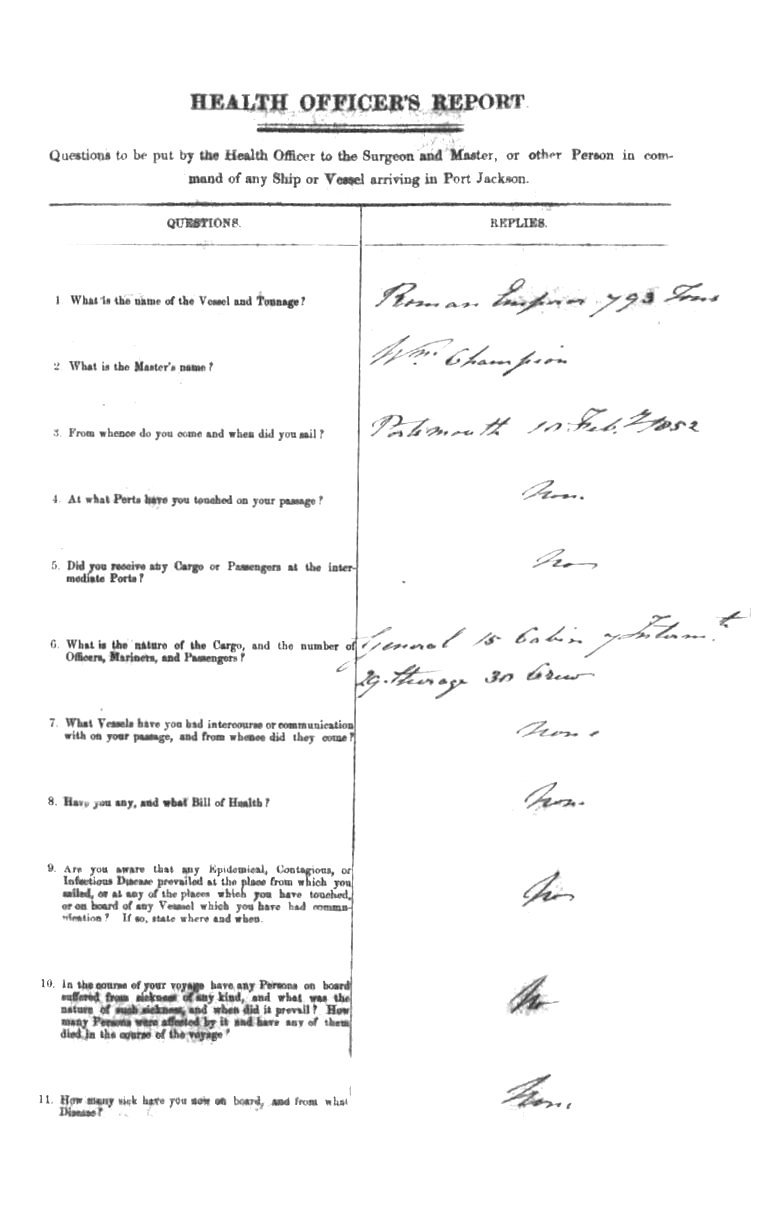 HEALTH OFFICER'S REPORT
Questions to be put by the Health Officer to the Surgeon and Master, or other Person in com-
mand of any Ship or Vessel arriving in Port Jackson.
QUESTIONS. REPLIES.
1 What is the name of the Vessel and Tonnage? Roman Emperor 793 Tons
2 What is the Master's name? Wm. Champion
3. From whence do you come and when did you sail? Portsmouth Feb.y 1852
4. At what Ports have you touched on your passage? Non.
5. Did you receive any Cargo or Passengers at the inter-
mediate Ports? No
6. What is the nature of the Cargo, and the number of General 15 Cabin Interm.
Officers, Mariners, and Passengers? 29. Sterage Crew
7. What Vessels have you had intercourse or communication
with on your passage, and from whence did they come? None
8. Have you any, and what Bill of Health? Non.
9. Are you aware that any Epidemical, Contagious, or
Infectious Disease prevailed at the place from which you
sailed, or at any of the places which you have touched, No
or on board of any Vessel which you have had commu-
nication? If so, state where and when.
10. In the course of your voyage have any Persons on board
suffered from sickness of any kind, and what was the No
nature of such sickness, and when did it prevail? How
many Persons were affected by it and have any of them
died in the course of the voyage?
11. How many sick have you now on board, and from what Non.
Disease?